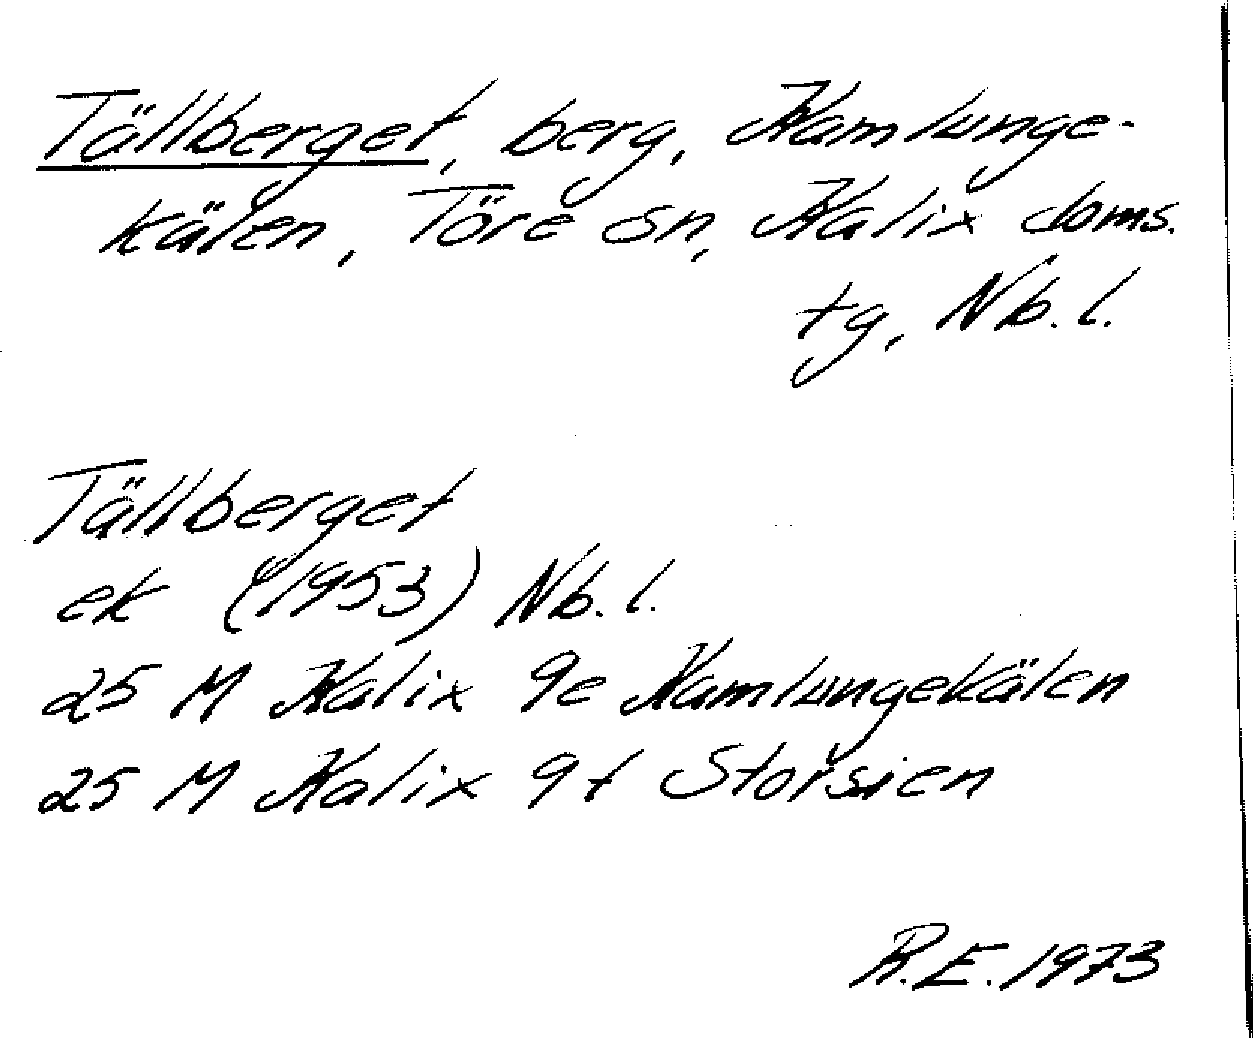 Tällberget, berg, Kamlunge-
kälen, Töre sn, Kalix doms.
tg, Nb. l.
Tällberget
ek (1953) Nb. l.
25 M Kalix 9e Kamlungekälen
25 M Kalix 9f Storsien
R.E. 1973